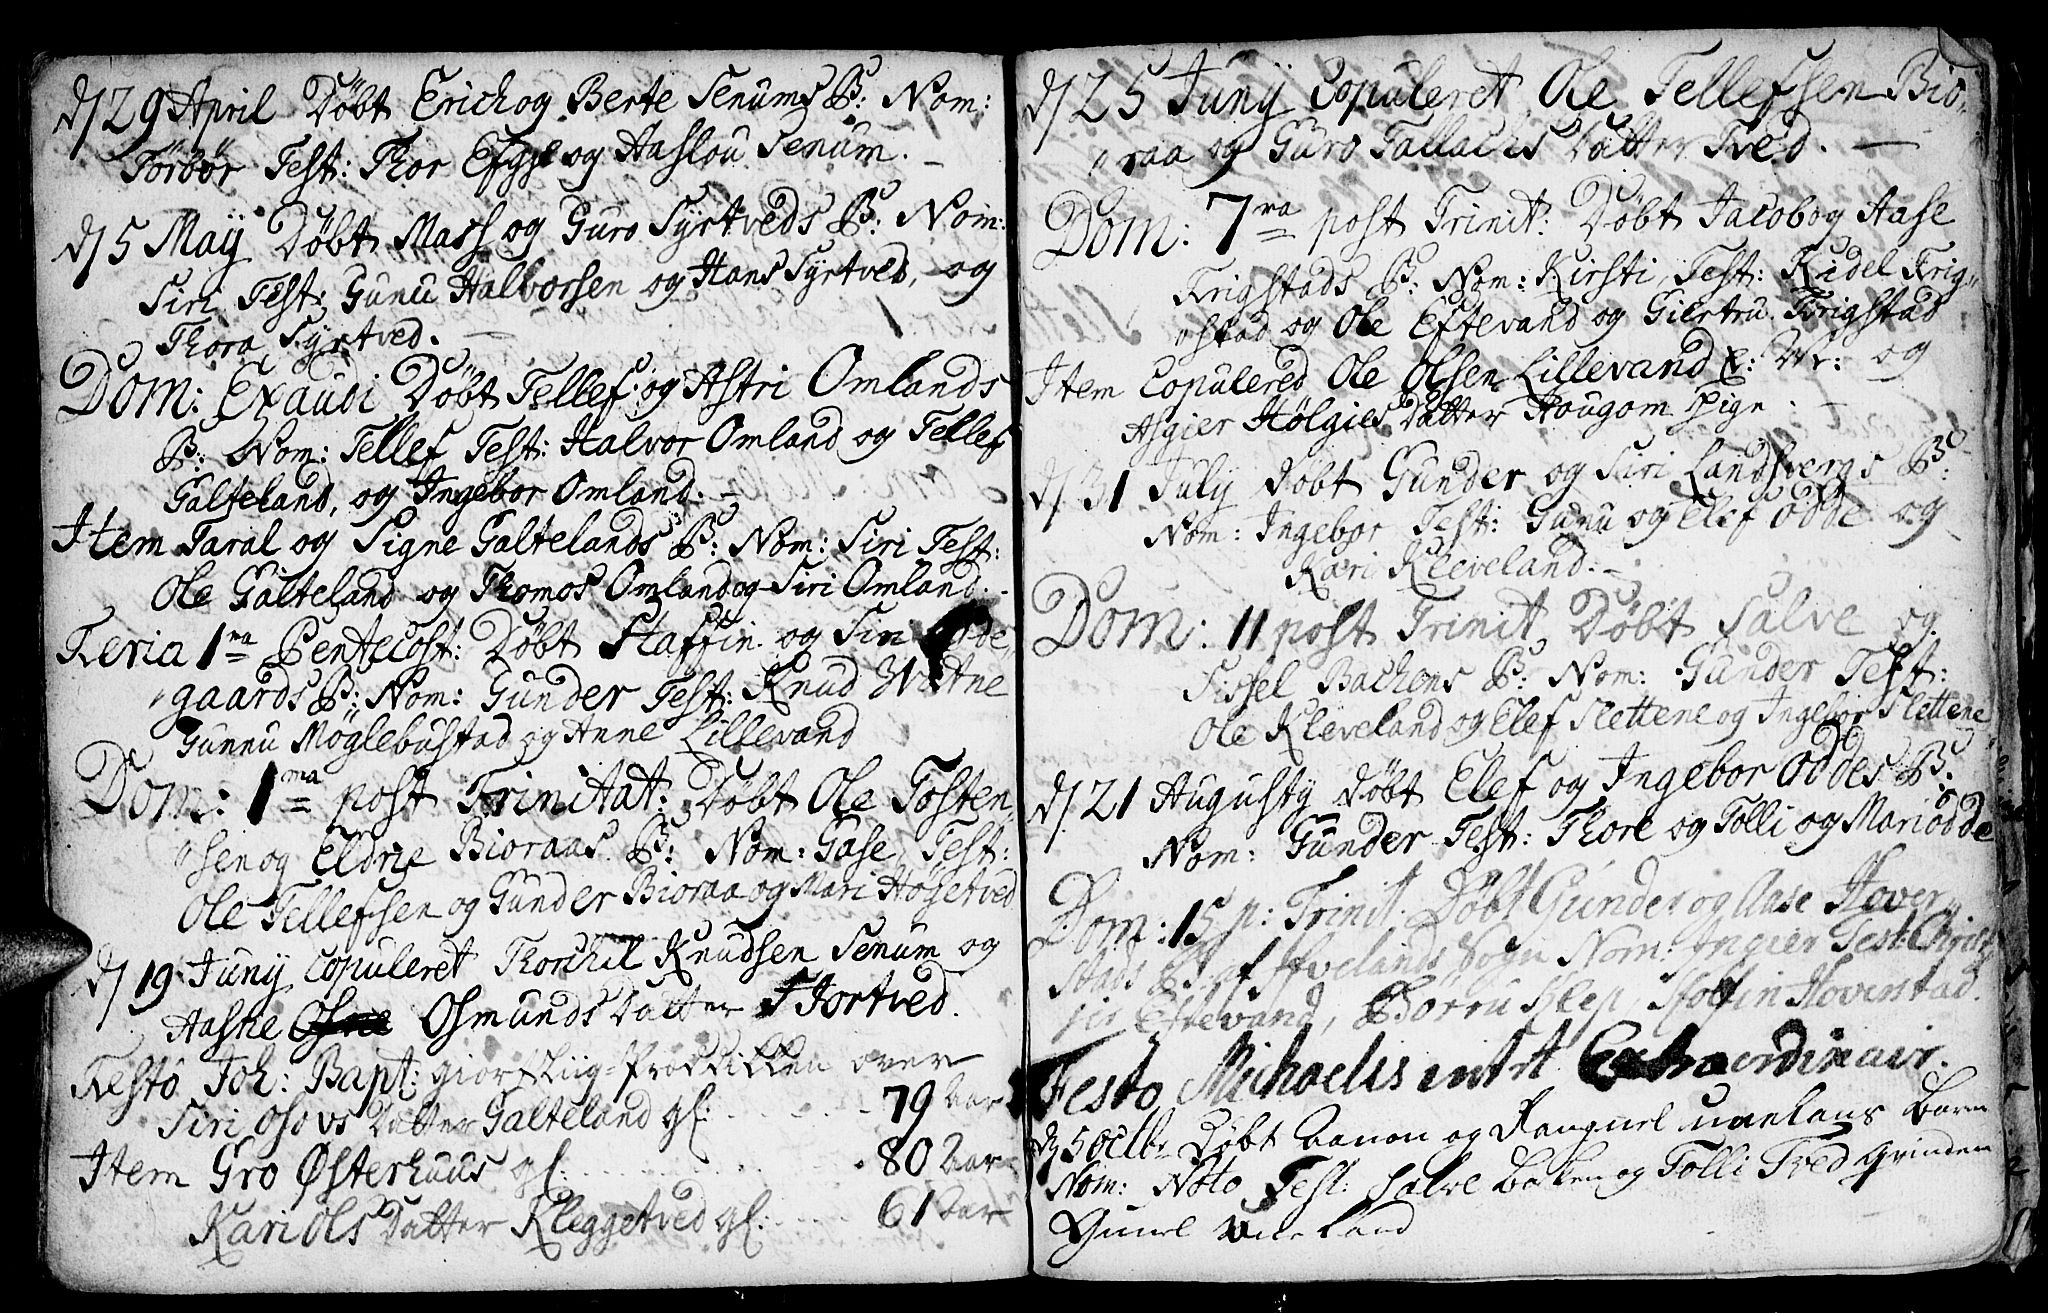 d/ 29 April Døbt Erich og Berte Senums B: Nom:
Torbor Test: Thor Efgse og Aaslou Senum. –
d/ 5 May Døbt Mass og Guro Syrtveds B: Nom:
Siri Test: Gunu Halvorsen og Hans Syrtved, og
Thora Syrtved. –
Dom: Exaudi Døbt Tellef og Astri Omlands
B: Nom: Tellef Test: Halvor Omland og Tellef
Galteland, og Ingebor Omland. –
Item Taral og Signe Galtelands B: Nom: Siri Test:
Ole Galteland og Thomos Omland og Siri Omland. –
Feria 1ma Pentecost: Døbt Staffin og Siri Odde„
„gaards B: Nom: Gunder Test: Knud Watne
Gunnu Møglebustad og Anne Lillevand
Dom: 1ma post Trinitat: Døbt Ole Tosten„
„sen og Eldrie Bioraas B: Nom: Gase, Test:
Ole Tellefsen og Gunder Bioraa og Mari Høgetved
d/ 19 Juny Copuleret Thorchil Knudsen Senum og
Aasne Osmunds Datter Hortved.
Festo Joh: Bapt: giort Liig-Prædikken over
Siri Osovs Datter Galteland gl: 79 Aar
Item Gro Østerhuus gl: 80 Aar
Kari Ols Datter Kleggetved gl: 61 Aar
d/ 25 Juny Copuleret Ole Tellefsen Bio„
„raa og Guro Tallachs Datter Tved. –
Dom: 7ma post Trinit: Døbt Jacob og Aase
Frigstads B: Nom: Kirsti, Test: Kidel Frig„
„stad og Ole Eftevand og Giertru Frigstad
Item Copulered Ole Olsen Lillevand E: Mr: og
Asgier Hølgies Datter Hougom Pige. –
d/ 31 July Døbt Gunder og Siri Landsvergs B:
Nom: Ingebor Test: Gunu og Elef Odde og
Kari Kleveland. –
Dom: 11 post Trinit Døbt Salve og
Sissel Bachens B: Nom: Gunder Test:
Ole Kleveland og Elef Slettene og Ingebor Slettene
d/ 21 Augusty Døbt Elef og Ingebor Oddes B:
Nom: Gunder Test: Thore og Tolli og Mari Odde
Dom: 15 p: Trinit. Døbt Gunder og Aase Hover„
stads B: af Hvelands Sogn Nom: Ingier Test: Chris
Eftevand, Børru Skep Hovinstad.
Festo Michaelis Extraordinair.
d/ 5 octbr Døbt og Ranguel Barn
Nom: Noto Test: Salve Baken og Tolli Tved